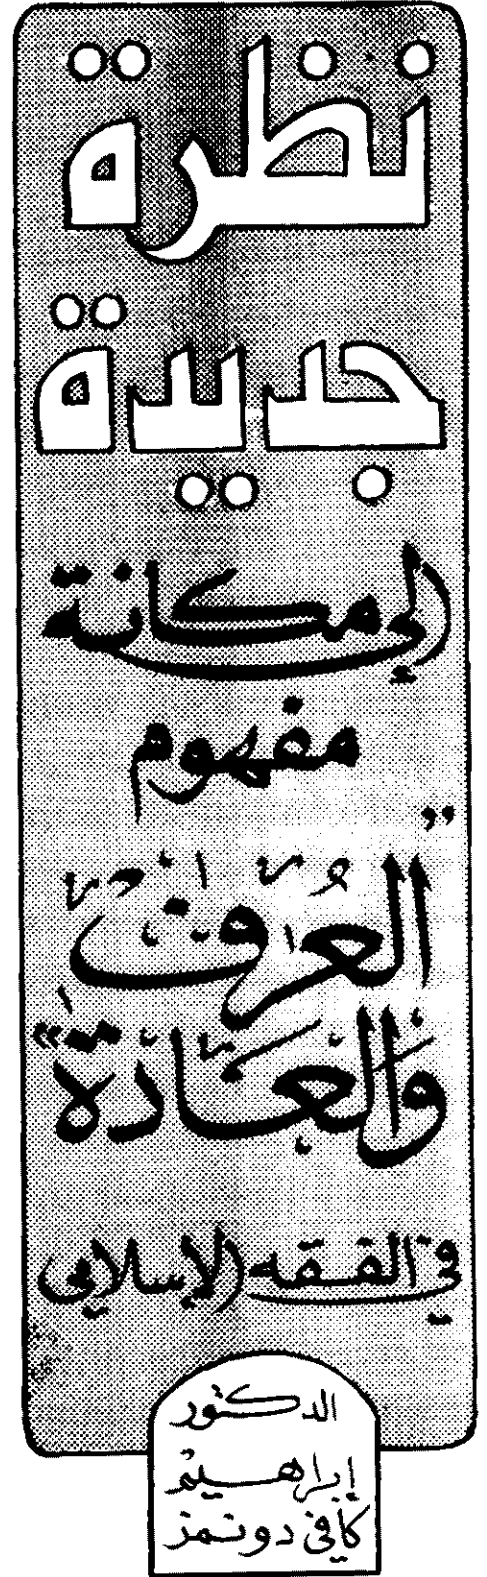 نظرة
جديدة
إلى مكانة
مفهوم
"العُرْف
وَالْعَادَة"
في الفقه الإسلامي
الدكتور
إبراهيم
كافي دونمز